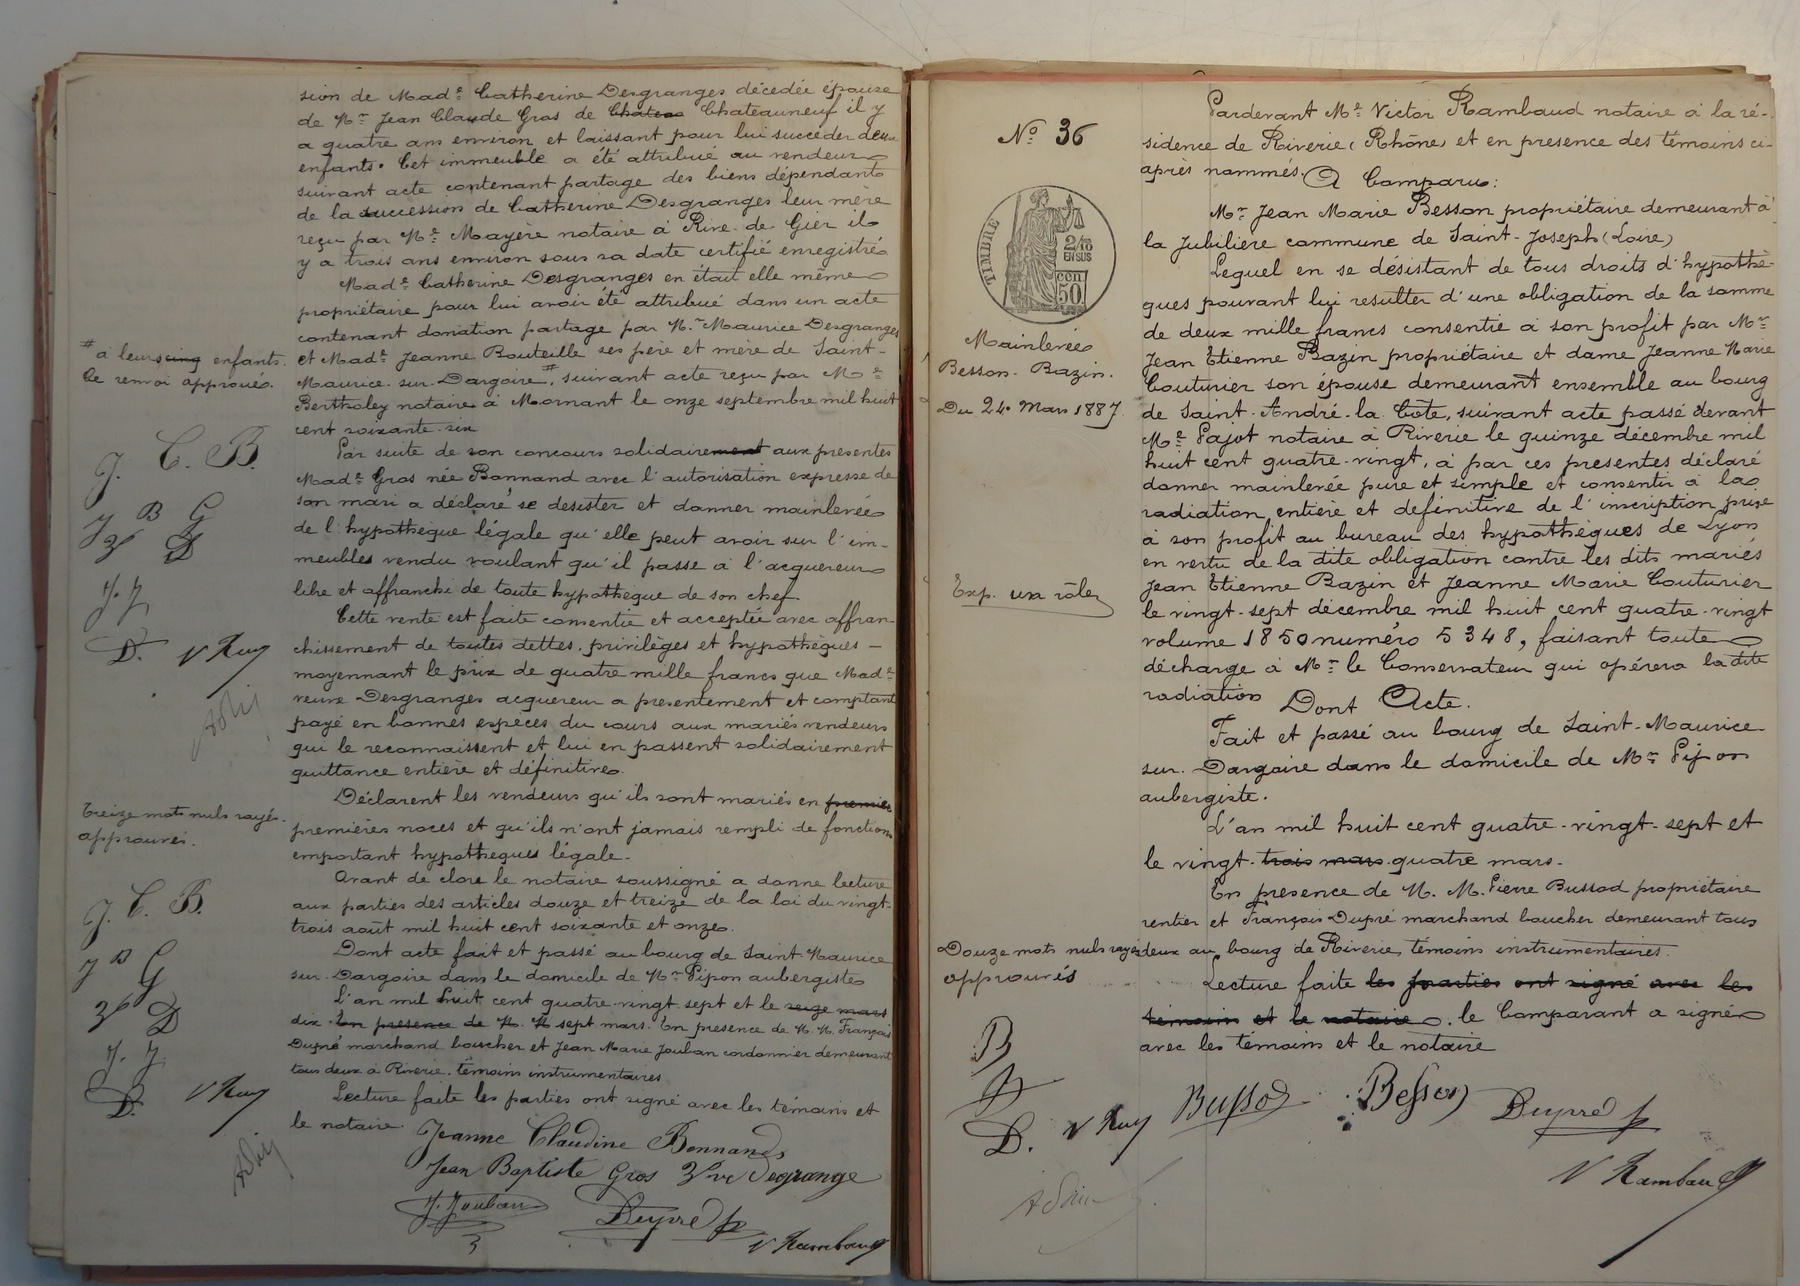 sion de Mad.e Catherine Desgranges décedée épouse
de Mr Jean Claude Gros de Chateau Chateauneuf il y
a quatre ans environ et laissant pour lui succéder deux
enfants. Cet immeuble a été attribué au vendeur
suivant acte contenant partage des biens dépendant
de la succession de Catherine Desgranges leur mère
reçu par Me Mayère notaire à Rive-de-Gier il
y a trois ans environ sous sa date certifié enregistré
Made Catherine Desgranges en était elle même
propriétaire pour lui avoir été attribué dans un acte
contenant donation partage par Mr Maurice Desgranges
et Made Jeanne Bouteille ses père et mère de Saint-
Maurice-sur-Dargoire #, suivant acte reçu par Me
Bertholey notaire à Mornant le onze septembre mil huit
cent soixante-six
# à leurs cinq enfants.
Ce renvoi approuvé.
Par suite de son concours solidairement aux présentes
Made Gros née Bonnand avec l'autorisation expresse de
son mari a déclaré se desister et donner mainlevée
de l'hypothèque légale qu'elle peut avoir sur l'im-
meubles vendu voulant qu'il passe à l'acquereur
libre et affranchi de toute hypothèque de son chef.
Cette vente est faite consentie et acceptée avec affran-
chissement de toutes dettes, privilèges et hypothèques -
moyennant le prix de quatre mille francs que Made
veuve Desgranges acquereur a présentement et comptant
payé en bonnes espèces du cours aux mariés vendeurs
qui le reconnaissent et lui en passent solidairement
quittance entière et définitive.
J. C. B.
J B G
Vve D
J. J
D. V Ray
Déclarent les vendeurs qu'ils sont mariés en premier
premières noces et qu'ils n'ont jamais rempli de fonctions
emportant hypothèque légale.
Treize mots nuls rayés.
approuvés.
Avant de clore le notaire soussigné a donné lecture
aux parties des articles douze et treize de la loi du vingt-
trois août mil huit cent soixante et onze.
Dont acte fait et passé au bourg de Saint Maurice
sur-Dargoire dans le domicile de Mr Pipon aubergiste
L'an mil huit cent quatre-vingt sept et le seize mars
dix-En presence de M. M sept mars. En presence de M. M. François
Dupré marchand boucher et Jean Marie Jouban cordonnier demeurant
tous deux à Riverie. témoins instrumentaires
Lecture faite les parties ont signé avec les témoins et
le notaire.
J. C. B.
J B G
Vve D
J. J
D. V Ray
Jeanne Claudine Bonnand
Jean Baptiste Gros Vve Degrange
J. Jouban Dupré V Rambaud
No 36
TIMBRE
2/10
EN SUS
50 cen
Mainlevée
Besson-Bazin.
Du 24 Mars 1887.
Exp. un rôle
Pardevant Me Victor Rambaud notaire à la ré-
sidence de Riverie (Rhône) et en présence des témoins ci-
après nommés. A Comparu:
Mr Jean Marie Besson propriétaire demeurant à
la Jubilière commune de Saint-Joseph (Loire)
Lequel en se désistant de tous droits d'hypothè-
ques pouvant lui résulter d'une obligation de la somme
de deux mille francs consentie à son profit par Mr
Jean Etienne Bazin propriétaire et dame Jeanne Marie
Couturier son épouse demeurant ensemble au bourg
de Saint-André-la-Côte, suivant acte passé devant
Me Pajot notaire à Riverie le quinze décembre mil
huit cent quatre-vingt, a par ces présentes déclaré
donner mainlevée pure et simple et consentir à la
radiation entière et définitive de l'inscription prise
à son profit au bureau des hypothèques de Lyon
en vertu de la dite obligation contre les dits mariés
Jean Etienne Bazin et Jeanne Marie Couturier
le vingt-sept décembre mil huit cent quatre-vingt
volume 1850 numéro 5348, faisant toute
décharge à Mr le Conservateur qui opérera la dite
radiation Dont Acte.
Fait et passé au bourg de Saint-Maurice
sur-Dargoire dans le domicile de Mr Pipon
aubergiste.
L'an mil huit cent quatre-vingt-sept et
le vingt-trois mars-quatre mars.
En présence de M. M. Pierre Bussod propriétaire
rentier et François Dupré marchand boucher demeurant tous
deux au bourg de Riverie, témoins instrumentaires.
Douze mots nuls rayés
approuvés
Lecture faite les parties ont signé avec les
témoins et le notaire. le Comparant a signé
avec les témoins et le notaire
B
B
D. V Ray Bussod Besson Dupré
V Rambaud